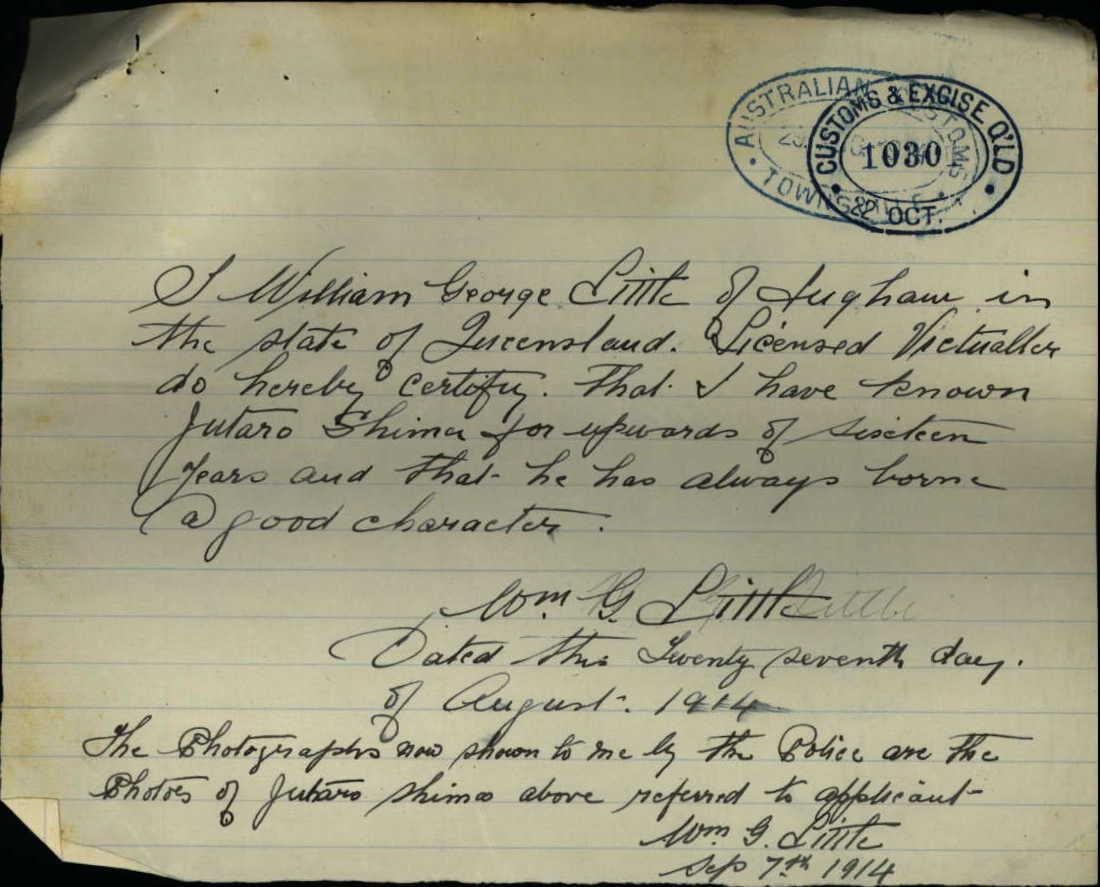 AUSTRALIAN CUSTOMS
TOWNSVILLE
CUSTOMS & EXCISE Q'LD
1030
22 OCT.
I William George Little of Ingham in
the state of Queensland. Licensed Victualler
do hereby certify. that I have known
Jutaro Shima for upwards of sixteen
years and that he has always borne
a good character.
Wm. G. Little
Dated this Twenty seventh day.
of August. 1914
The Photographs now shown to me by the Police are the
Photoes of Jutaro Shima above referred to applicant
Wm. G. Little
Sep 7th 1914